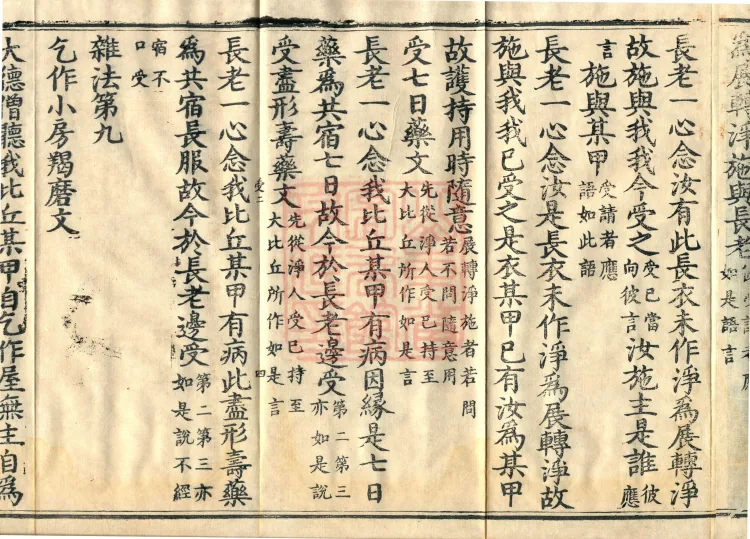 為展轉淨施與長老
如是語言
長老一心念汝有此長衣未作淨為展轉淨
故施與我我今受之受已當向彼言汝施主是誰彼應
言施與某甲受請者應語如此語
長老一心念汝是長衣未作淨為展轉淨故
施與我我已受之是衣某甲已有汝為某甲
故護持用時隨意展轉淨施者若問若不問隨意用
受七日藥文先從淨人受已持至大比丘所作如是言
長老一心念我比丘某甲有病因緣是七日
藥為共宿七日故今於長老邊受第二第三亦如是說
受盡形壽藥文先從淨人受已持至大比丘所作如是言
長老一心念我比丘某甲有病此盡形壽藥
為共宿長服故今於長老邊受第二第三亦如是說不經
宿不口受
雜法第九
乞作小房羯磨文
大德僧聽我比丘某甲自乞作屋無主自為